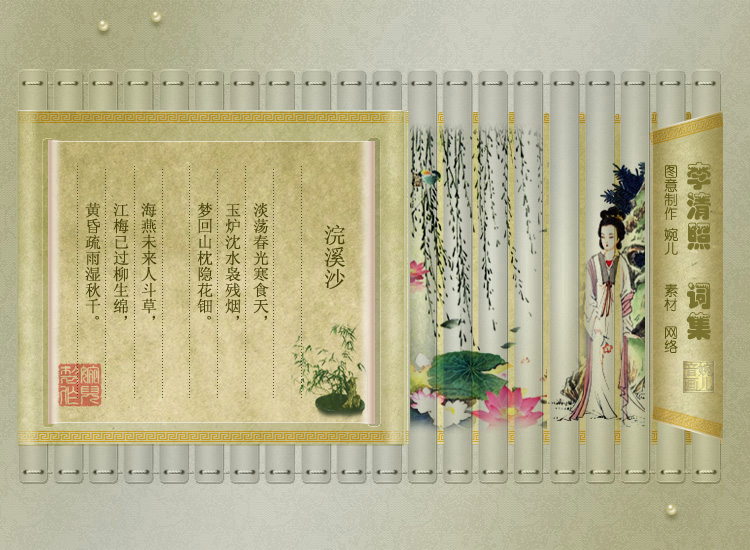 李清照 词集
图意制作 婉儿 素材 网络
浣溪沙
淡荡春光寒食天,
玉炉沈水袅残烟,
梦回山枕隐花钿。
海燕未来人斗草,
江梅已过柳生绵,
黄昏疏雨湿秋千。